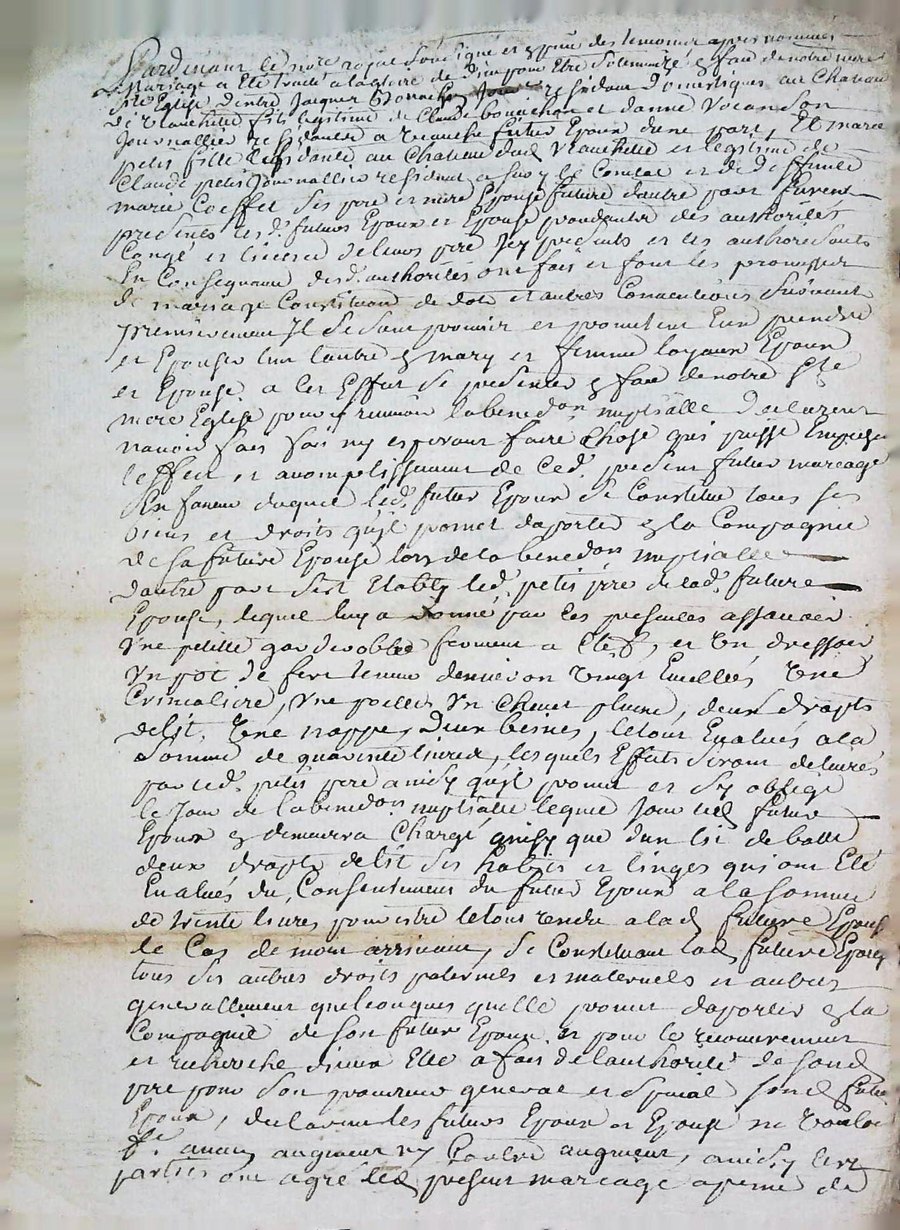 Pardevant le no.re royal soussigné et p̃nts des temoins apres nommés
mariage a Eté traité a la gloire de dieu pour Etre solemnizé en face de notre mere
Ste Eglise d'entre Jacques Bonnachon residant domestiques au Chateau
fils legitime de Claude bonnechon et danne vocanson
Journallier residants a future Epoux dune part, Et marie
petit fille residante au Chateau dud et legitime de
Claude petit Journallier resident a le Comtat et de deffunte
marie Coeffet ses pere et mere Epouse future dautre part furent
presents les d. futurs Epoux et Epouse procedants des authorités
Congé et licence de leurs pere icy presents et les authorisants
En Consequence desd. authorités ont fait et font les promesses
de mariage Constitution de dote et autres Conventions suivant
premierement Il se sont promis et promettent Eux prendre
et Epouser lun lautre en mary et femme loyaux Epoux
et Epouse a les Effet se presenter en face de notre Ste
mere Eglise pour y reunoir la benedon nuptialle declarent
navoir fait fait ny esperant faire chose qui puisse Empecher
leffect et accomplissement de Ced. present futur mareage
En faveur duquel led. futur Epoux se Constitue tous ses
biens et droits quil promet daporter en la Compagnie
de sa future Epouse lors de la benedon nuptialle
dautre part sest Etably led. petit pere de lad. future
Epouse, lequel luy a donné par les presentes assavoir
Vne petitte garderobbe fermant a clef, et Un dressoir
Vn pot de fert tenant denviron vingt Cueillées Vne
Crimaliere, vne poelle, Vn chevet plume, deux drapts
de lit. Vne nappe, deux beines, le tout Evalués a la
somme de quarante livres, lesquels Effaits seront delivrés
par led. petit pere ainsy quil promet et sy oblige
le Jour de la benedon nuptiale lequel Jour led. futur
Epoux en demeurra Chargé ainsy que dun lit de balle
deux drapts de lit ses habits et linges qui ont Eté
Evalués du Consentement du futur Epoux a la somme
de trente livres pour etre le tout rendu a lad. future Epouse
le Cas de mort arrivant, se Constituant lad. future Epouse
tous ses autres droits paternels et maternels et autres
generallement quelconques quelle promet daporter en la
Compagnie de son futur Epoux. et pour le recouvrement
et recherche diceux Elle a fait de lauthorité de sond.
pere pour son procureur general et special sond. futur
Epoux, declarant les futurs Epoux et Epouse ne vouloir
aucun augment ny Contre augment, ainsy les
parties ont agré led. present mareage a peine de